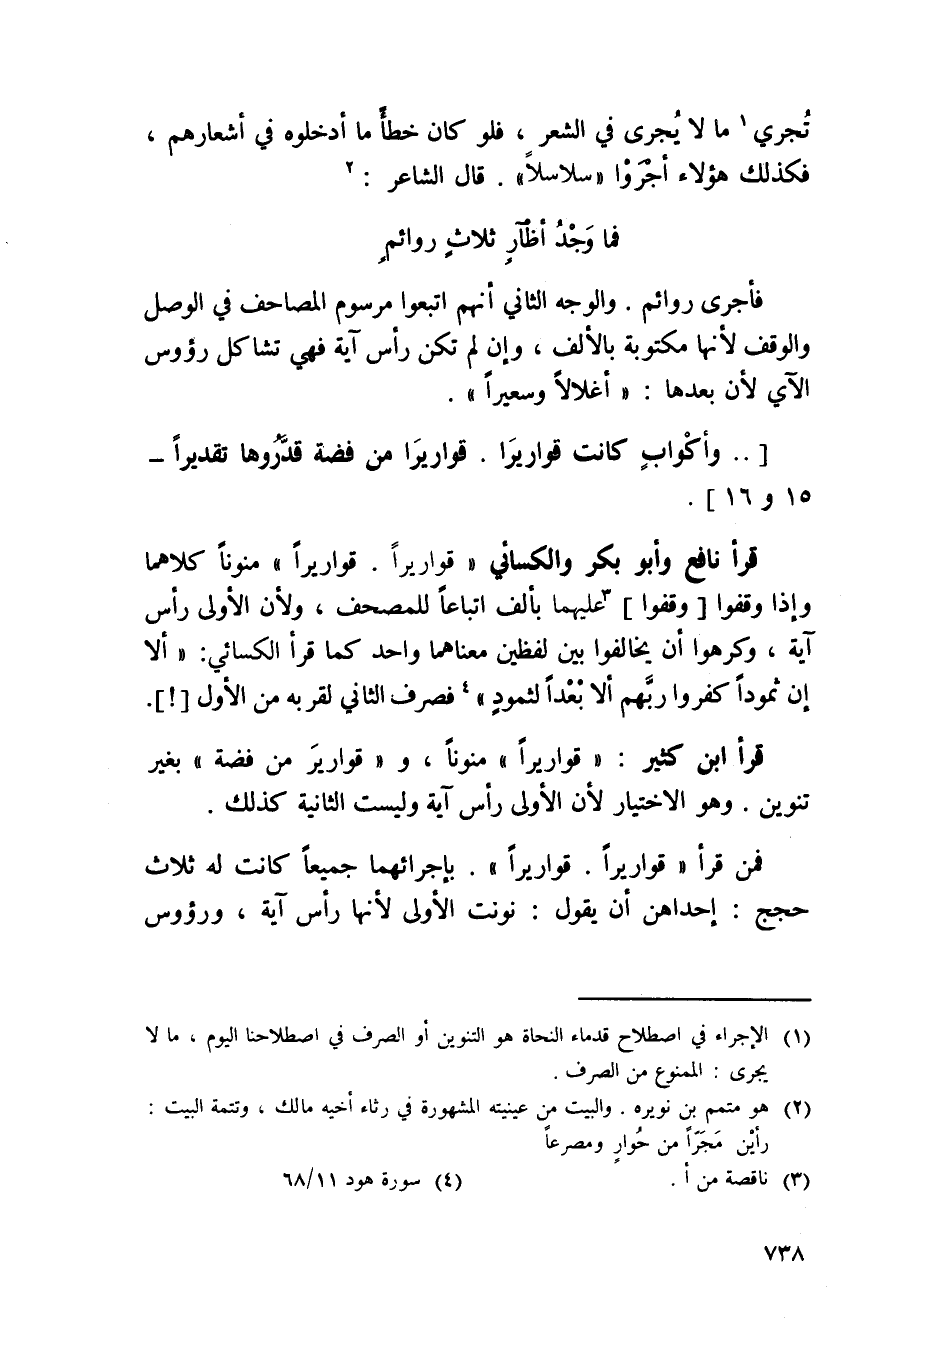 تُجري١ ما لا يُجرى في الشعر ، فلو كان خطأً ما أدخلوه في أشعارهم ،
فكذلك هؤلاء أجْرَوْا «سلاسلاً» . قال الشاعر :٢
فما وَجْدُ أظْآرٍ ثلاثٍ روائمٍ
فأجرى روائم . والوجه الثاني أنهم اتبعوا مرسوم المصاحف في الوصل
والوقف لأنها مكتوبة بالألف ، وإن لم تكن رأس آية فهي تشاكل رؤوس
الآي لأن بعدها : « أغلالاً وسعيراً » .
[ .. وأكْوابٍ كانت قواريرَا . قواريرَا من فضة قدَّرُوها تقديراً –
١٥ و ١٦ ] .
قرأ نافع وأبو بكر والكسائي « قواريراً . قواريراً » منوناً كلاهما
وإذا وقفوا [ وقفوا ]٣ عليهما بألف اتباعاً للمصحف ، ولأن الأولى رأس
آية ، وكرهوا أن يخالفوا بين لفظين معناهما واحد كما قرأ الكسائي: « ألا
إن ثموداً كفروا ربَّهم ألا بُعْداً لثمودٍ »٤ فصرف الثاني لقربه من الأول [!].
قرأ ابن كثير : « قواريراً » منوناً ، و « قواريرَ من فضة » بغير
تنوين . وهو الاختيار لأن الأولى رأس آية وليست الثانية كذلك .
فمن قرأ « قواريراً . قواريراً » . بإجرائهما جميعاً كانت له ثلاث
حجج : إحداهن أن يقول : نونت الأولى لأنها رأس آية ، ورؤوس
(١) الإجراء في اصطلاح قدماء النحاة هو التنوين أو الصرف في اصطلاحنا اليوم ، ما لا
يجرى : الممنوع من الصرف .
(٢) هو متمم بن نويره . والبيت من عينيته المشهورة في رثاء أخيه مالك ، وتتمة البيت :
رأيْن مَجَرّاً من حُوارٍ ومصرعاً
(٣) ناقصة من أ . (٤) سورة هود ٦٨/١١
٧٣٨